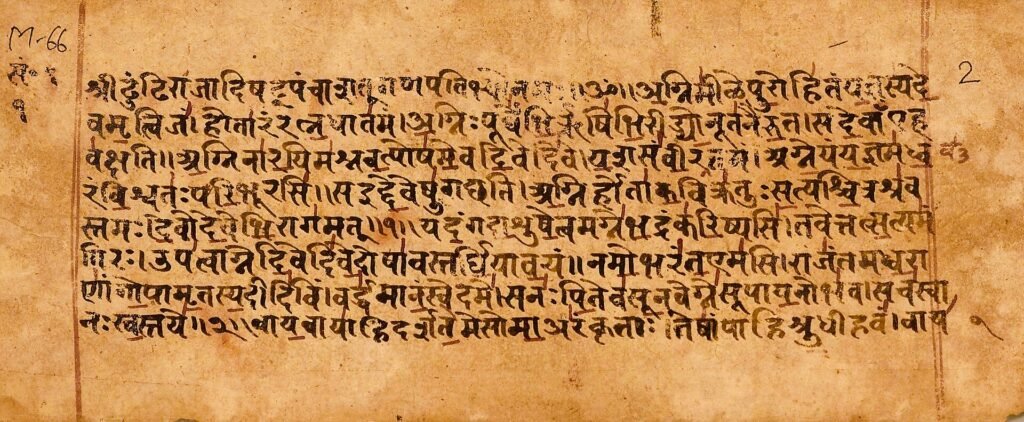 M-66
2
श्रीढुंढिराजादि ॥ॐ॥ अग्निमीळेपुरोहितंयज्ञस्यदे
वमृत्विजं।होतारंरत्नधातमं।अग्निःपूर्वेभिर्ऋषिभिरीड्योनूतनैरुत।सदेवाँएह
वक्षति॥अग्निनारयिमश्नवत्पोषमेवदिवेदिवे।यशसंवीरवत्तमं।अग्नेयंयज्ञमध्व
रंविश्वतःपरिभूरसि॥सइद्देवेषुगछति।अग्निर्होताकविक्रतुःसत्यश्चित्रश्रव
स्तमः।देवोदेवेभिरागमत्॥१॥यदंगदाशुषेत्वमग्नेभद्रंकरिष्यसि।तवेत्तत्सत्यमं
गिरः।उपत्वाग्नेदिवेदिवेदोषावस्तर्धियावयं॥नमोभरंतएमसि।राजंतमध्वरा
णांगोपामृतस्यदीदिविं।वर्द्धमानंस्वेदमे।सनःपितेवसूनवेग्नेसूपायनोभव।सचस्वा
नःस्वस्तये॥२॥वायवायाहिदर्शतेमेसोमाअरंकृताः।तेषांपाहिश्रुधीहवं।वाय
१